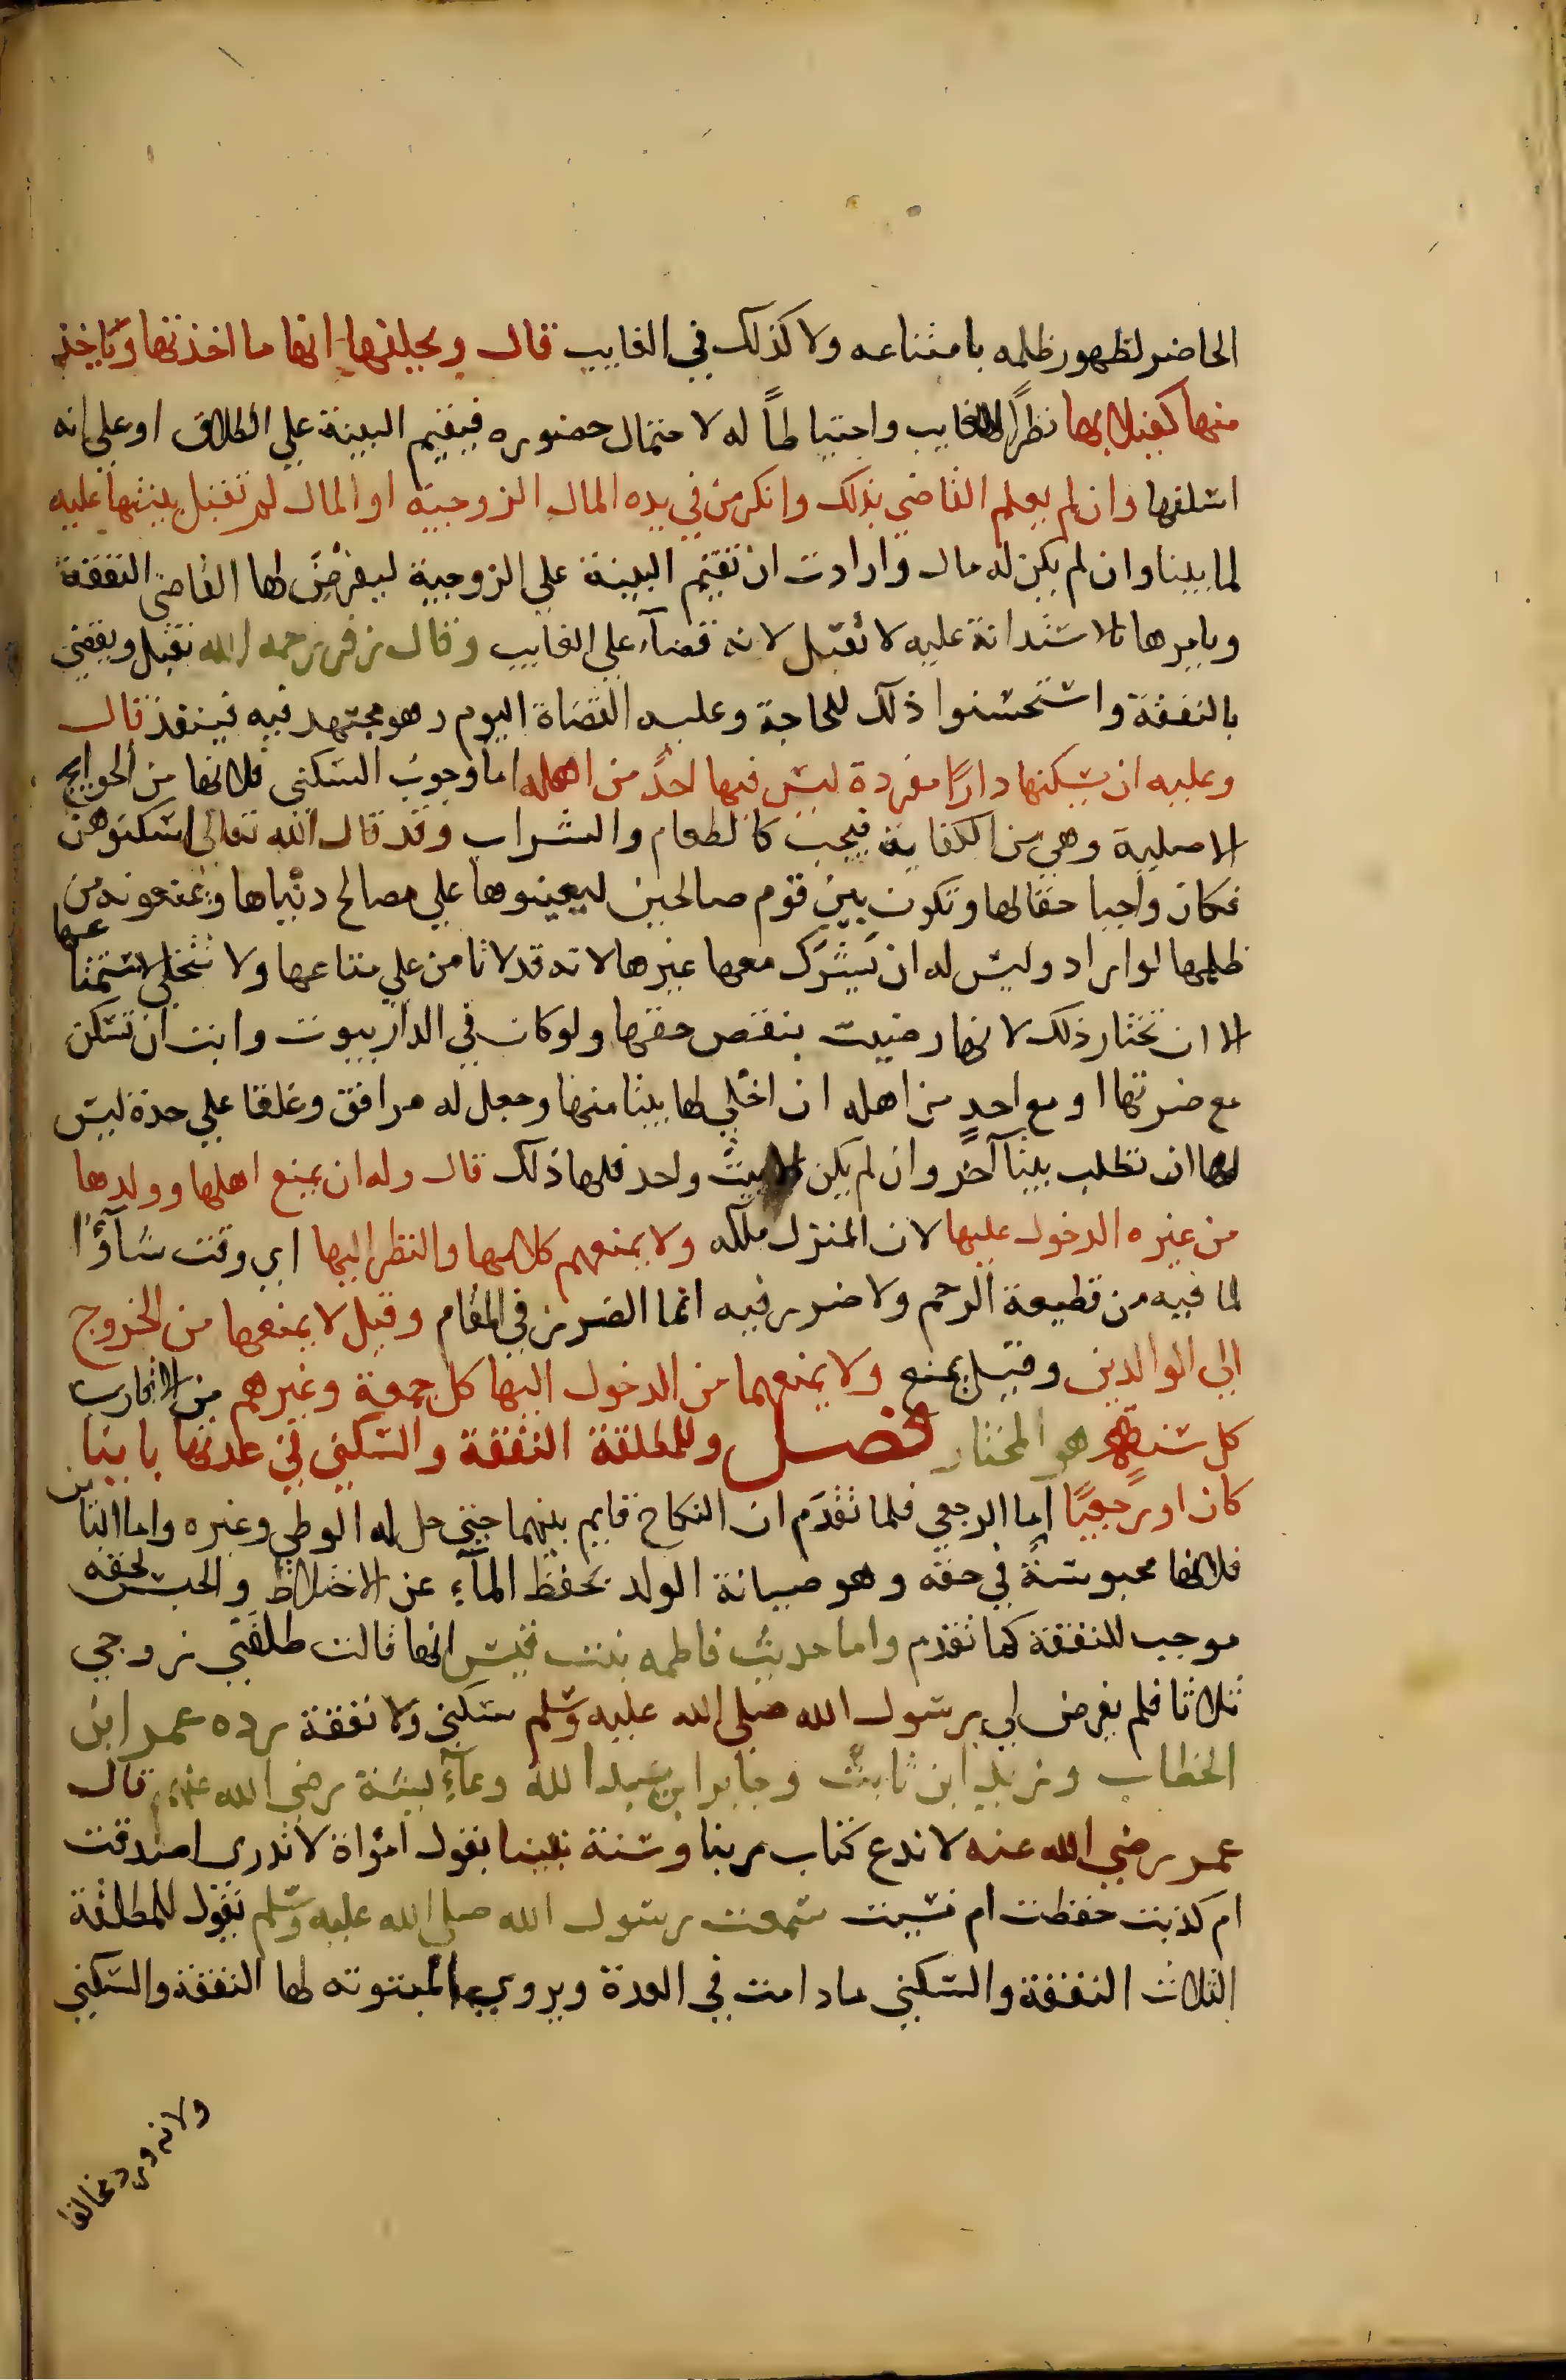 الحاضر لظهور ظلمه بامتناعه ولا كذلك في الغايب قال ويحلفها انها ما اخذتها وياخذ
منها كفيلا بها نظرًا للغايب واحتياطاً له لاحتمال حضوره فيقيم البينة علي الطلاق او علي انه
اسلفها وان لم يعلم القاضي بذلك وانكر من في يده المال الزوجية او المال لم تقبل بينتها عليه
لما بينا وان لم يكن له مال وارادت ان تقيم البينة علي الزوجية ليفرض لها القاضي النفقة
ويامرها بالاستدانة عليه لا تقبل لانه قضآء علي الغايب وقال زفر رحمه الله تقبل ويقضي
بالنفقة واستحسنوا ذلك للحاجة وعليه القضاة اليوم وهو مجتهد فيه فينفذ قال
وعليه ان يسكنها دارًا مفردة ليس فيها احدٌ من اهله اما وجوب السكني فلانها من الحوايج
الاصلية وهي من الكفاية فيجب كالطعام والشراب وقد قال الله تعالى اسكنوهن
فكان واجبا حقا لها وتكون بين قوم صالحين ليعينوها علي مصالح دنياها ويمنعونه من
ظلمها لو اراد وليس له ان يشرك معها غيرها لانه قد لا تامن علي متاعها ولا تتخلي لاستمتاعها
الا ان تختار ذلك لانها رضيت بنقص حقها ولو كان في الدار بيوت وابت ان تسكن
مع ضرتها او مع احدٍ من اهله ان اخلي لها بيتا منها وجعل له مرافق وغلقا علي حدة ليس
لها ان تطلب بيتآ آخر وان لم يكن الا بيت واحد فلها ذلك قال وله ان يمنع اهلها وولدها
من غيره الدخول عليها لان المنزل ملكه ولا يمنعهم كلامها والنظر اليها اي وقت شآؤا
لما فيه من قطيعة الرحم ولا ضرر فيه انما الضرر في المقام وقيل لا يمنعها من الخروج
الي الوالدين وقيل يمنع ولا يمنعهما من الدخول اليها كل جمعة وغيرهم من الاقارب
كل سنة هو المختار فصل وللمطلقة النفقة والسكني في عدتها باينا
كان او رجعيًا اما الرجعي فلما تقدم ان النكاح قايم بينهما حتي حل له الوطي وغيره واما الباين
فلانها محبوسةً في حقه وهو صيانة الولد بحفظ المآء عن الاختلاط والحبس لحقه
موجب للنفقة كما تقدم واما حديث فاطمه بنت قيس انها قالت طلقني زوجي
ثلاثا فلم يفرض لي رسول الله صلى الله عليه وسلم سكني ولا نفقة رده عمر ابن
الخطاب وزيد ابن ثابت وجابر ابن عبد الله وعآيشة رضي الله عنهم قال
عمر رضي الله عنه لا ندع كتاب ربنا وسنة نبينا بقول امراة لا ندري اصدقت
ام كذبت حفظت ام نسيت سمعت رسول الله صلي الله عليه وسلم يقول للمطلقة
الثلاث النفقة والسكني ما دامت في العدة ويروي المبتوته لها النفقة والسكني
ولانه ورد مخالفا